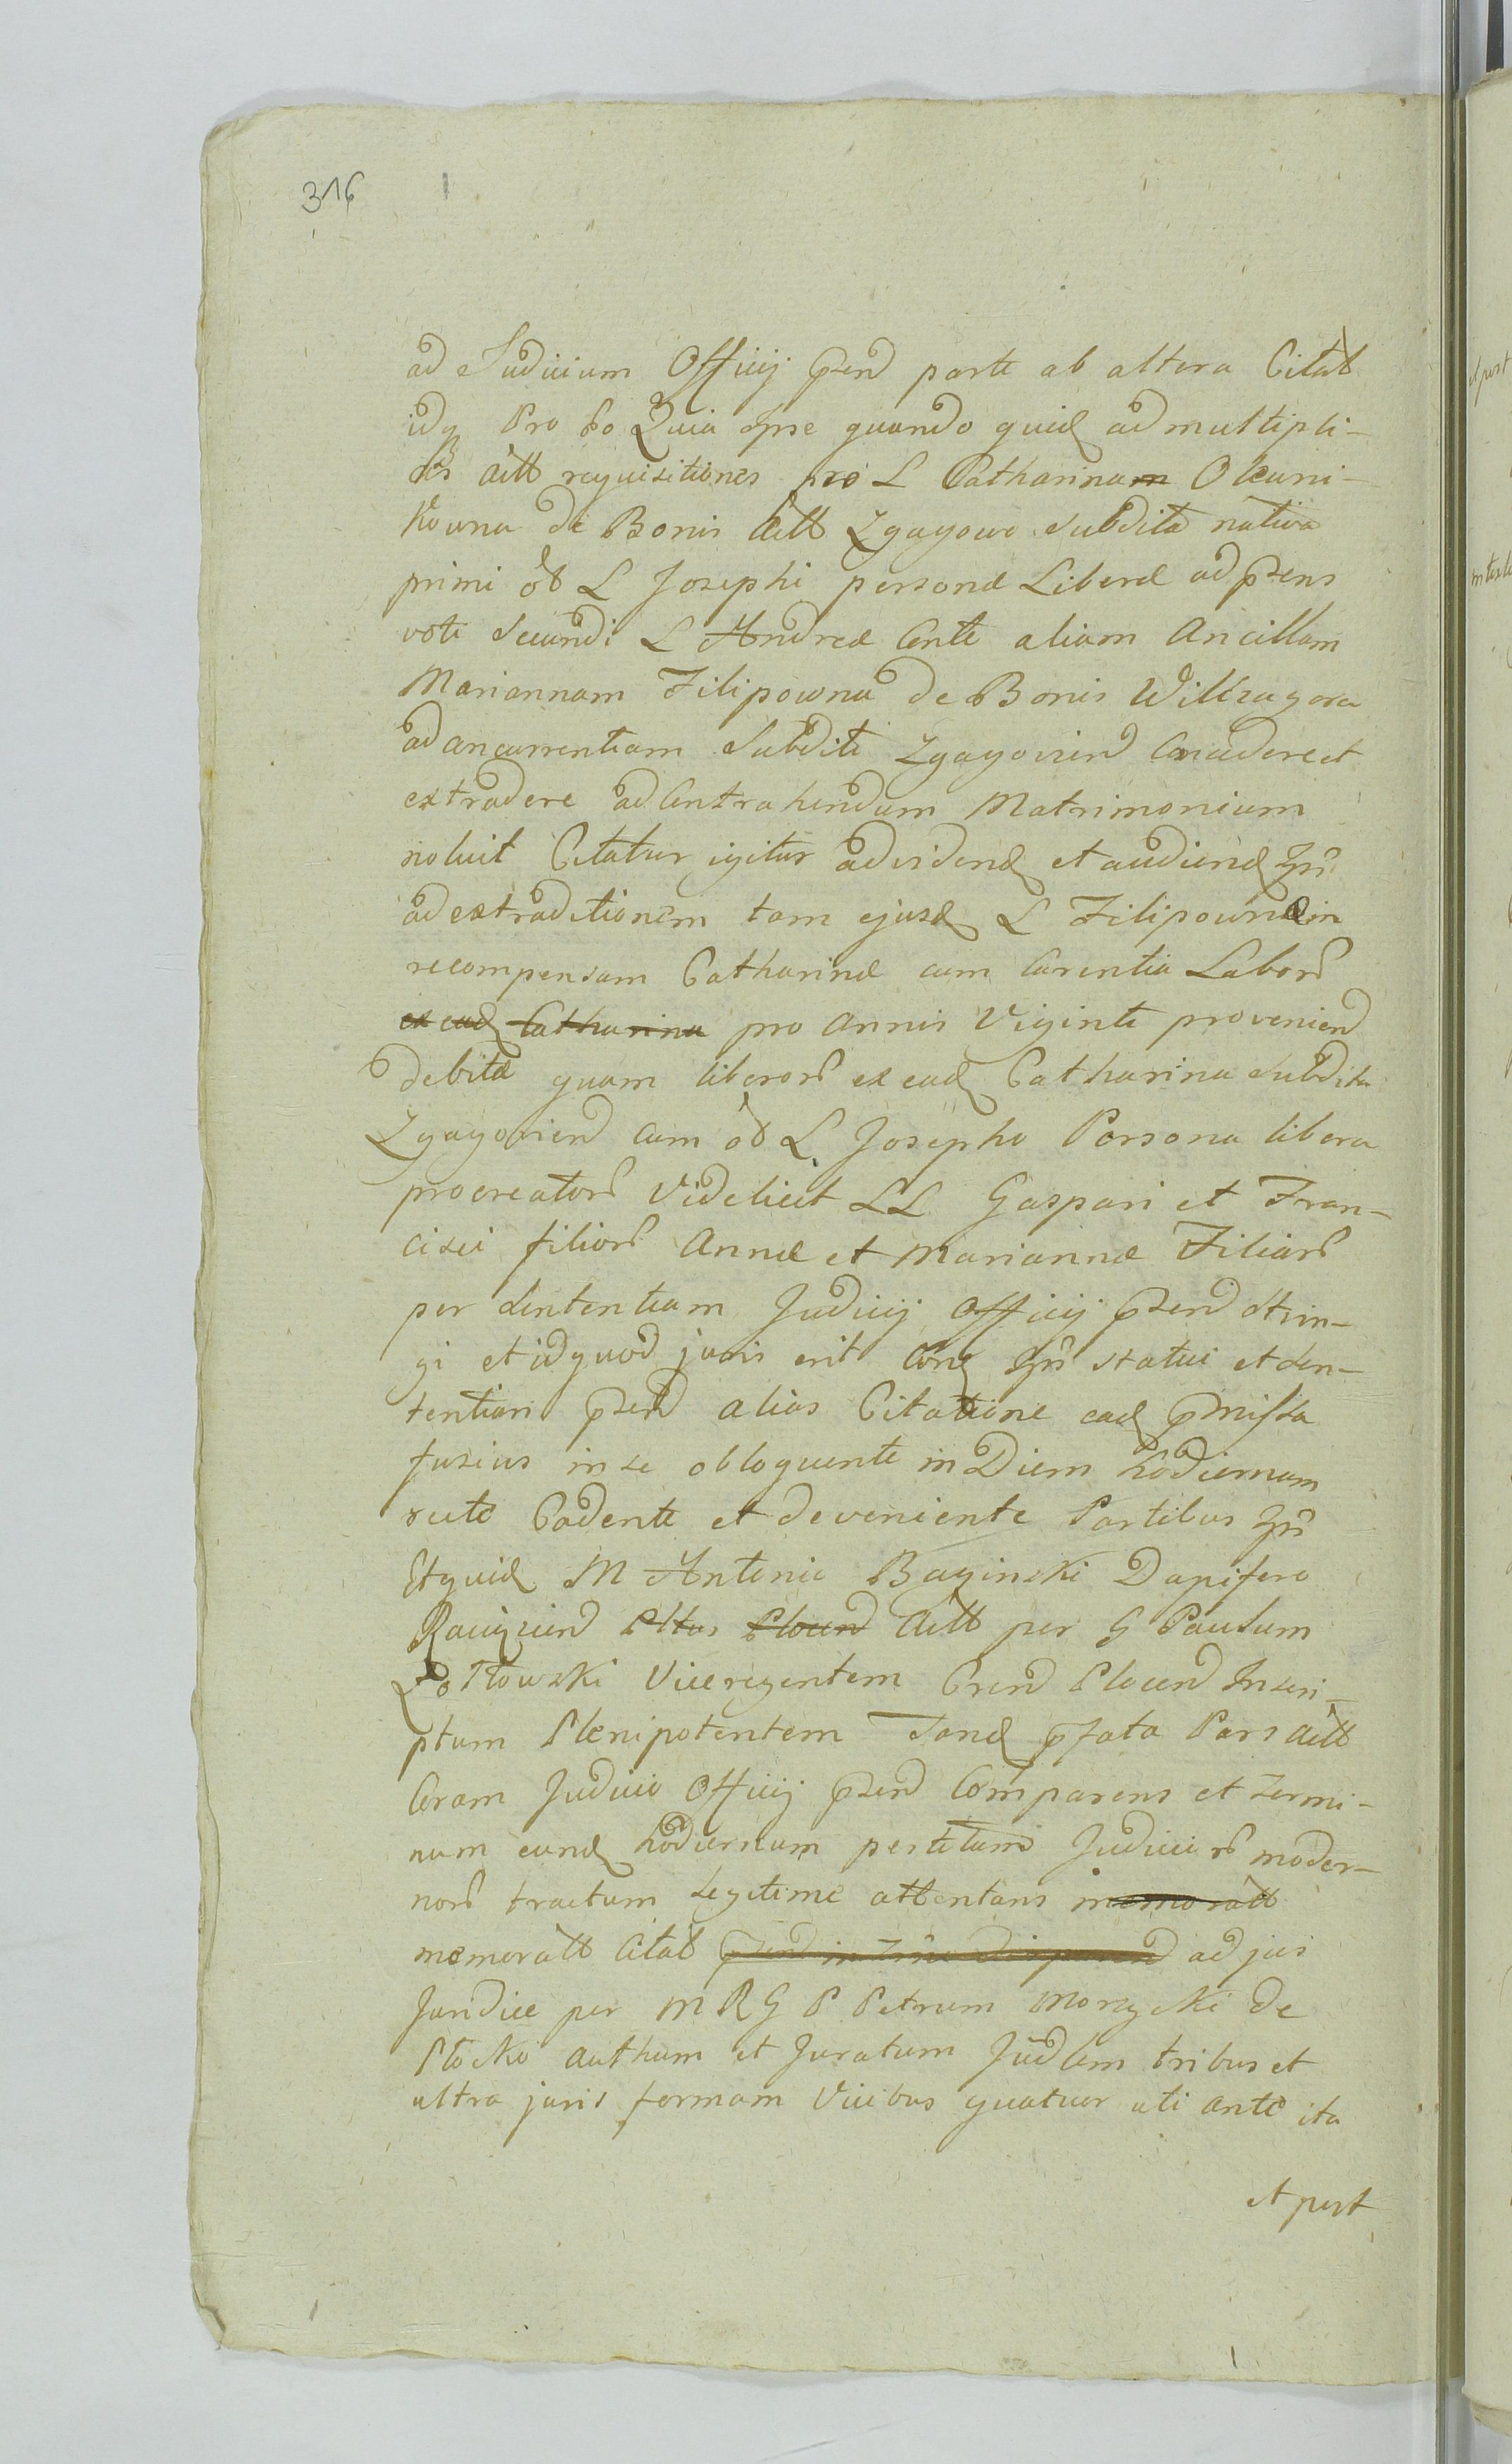 316
ad Judicium Officij pzend parte ab altera Citat
idq Pro eo Quia Ipse quando quid ad multipli-
es Actt requisitiones pro L Catharinam Oleini-
kowna de Bonis Actt Zgagowo Subdita nativa
primi ob L Josephi personæ Liberæ ad pzens
voti Secundi L Andreæ Conte aliam Ancillam
Mariannam Filipowna de Bonis
ad concurrentiam Subditi Zgagovien Concedere et
extradere ad Contrahendum Matrimonium
noluit Citatur igitur ad videnđ et audiendđ Ipr
ad extraditionem tam ejusđ L Filipownæ in
recompensam Catharinæ cum Carentia Labor
ex eađ Catharina pro Annis Viginti provenien
debitæ quam liberor ex eađ Catharina Subdita
Zgagovien cum ob L Josepho Persona libera
procreator Videlicet LL Gaspari et Fran-
cisci filior Annæ et Mariannæ Filiar
per Sententiam Judicij Officij pzend Strin-
gi et id quod juris erit Conđ Ipr statui et Sen-
tentiari pzend alias Citatione eađ pmissa
fusius in se obloquente in Diem hodiernam
recte Cadente et deveniente Partibus Ipr
Etquiđ M Antonio Baginski Dapifero
Raciązien Pltus Plocen Actt per G Paulum
Viceregentem Cren Plocen Inscri-
ptum Plenipotentem Tanđ pfata Pars Actt
Coram Judicio Officij pzend Comparens et Termi-
num eunđ hodiernum pertetum Judicior moder-
nor tractum Legitime attentans memoratt
memoratt Citat ad jus
Juridice per M R G P Petrum Morzycki de
Płocko authum et Juratum Judlem tribus et
ultra juris formam Vicibus quatuor uti ante ita
et post